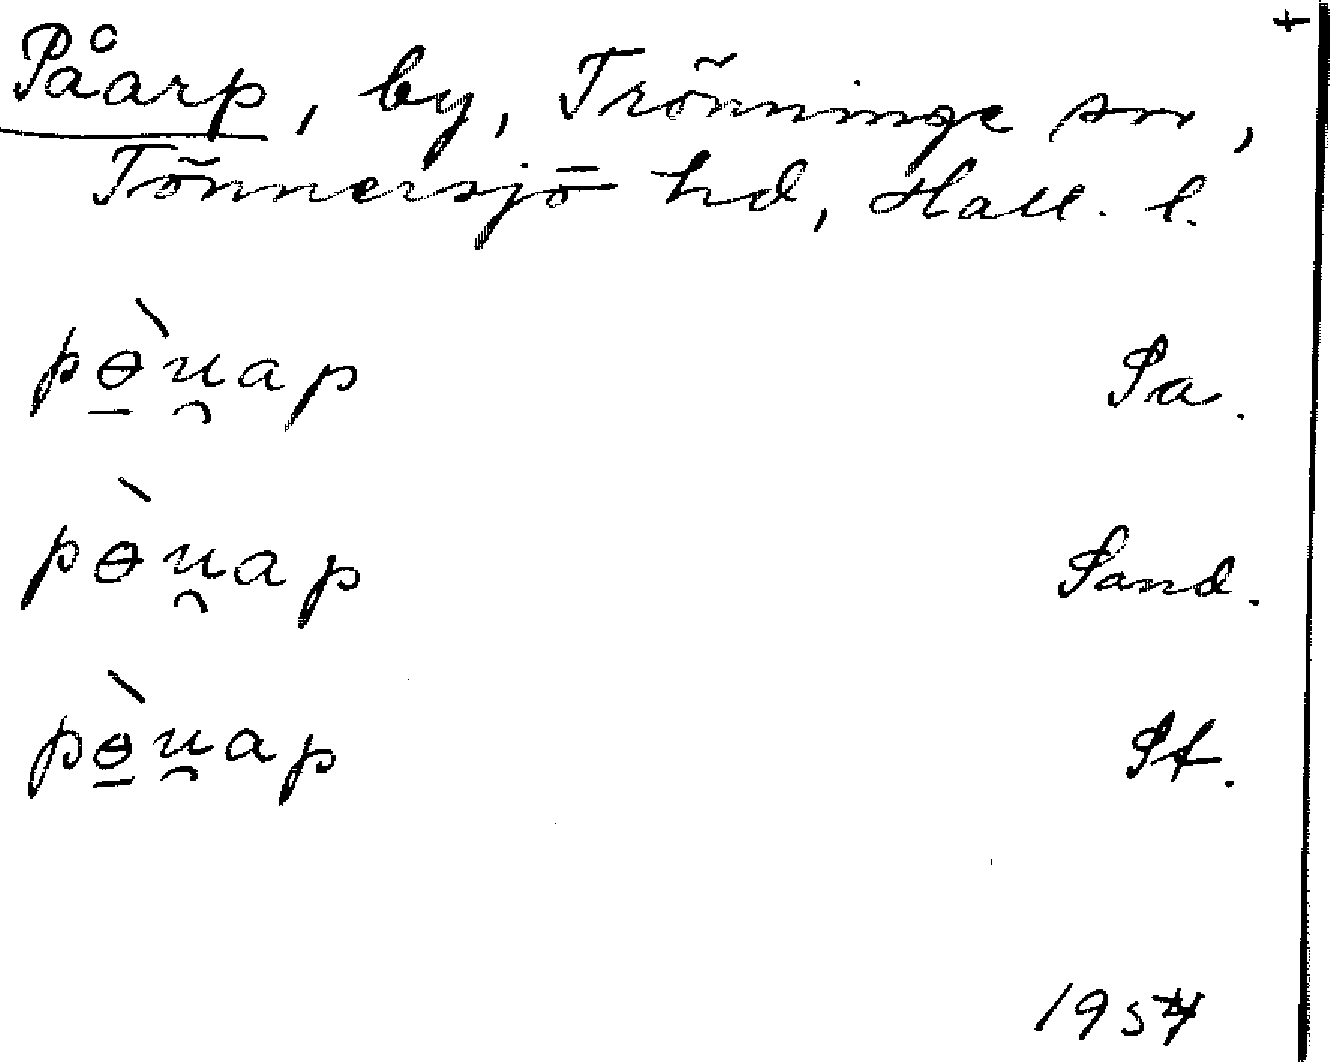 +
Påarp, by, Trönninge sn,
Tönnersjö hd, Hall. l.
pɵ̱̀u̯ap Sa.
pɵ̀u̯ap Sand.
pɵ̱̀u̯ap St.